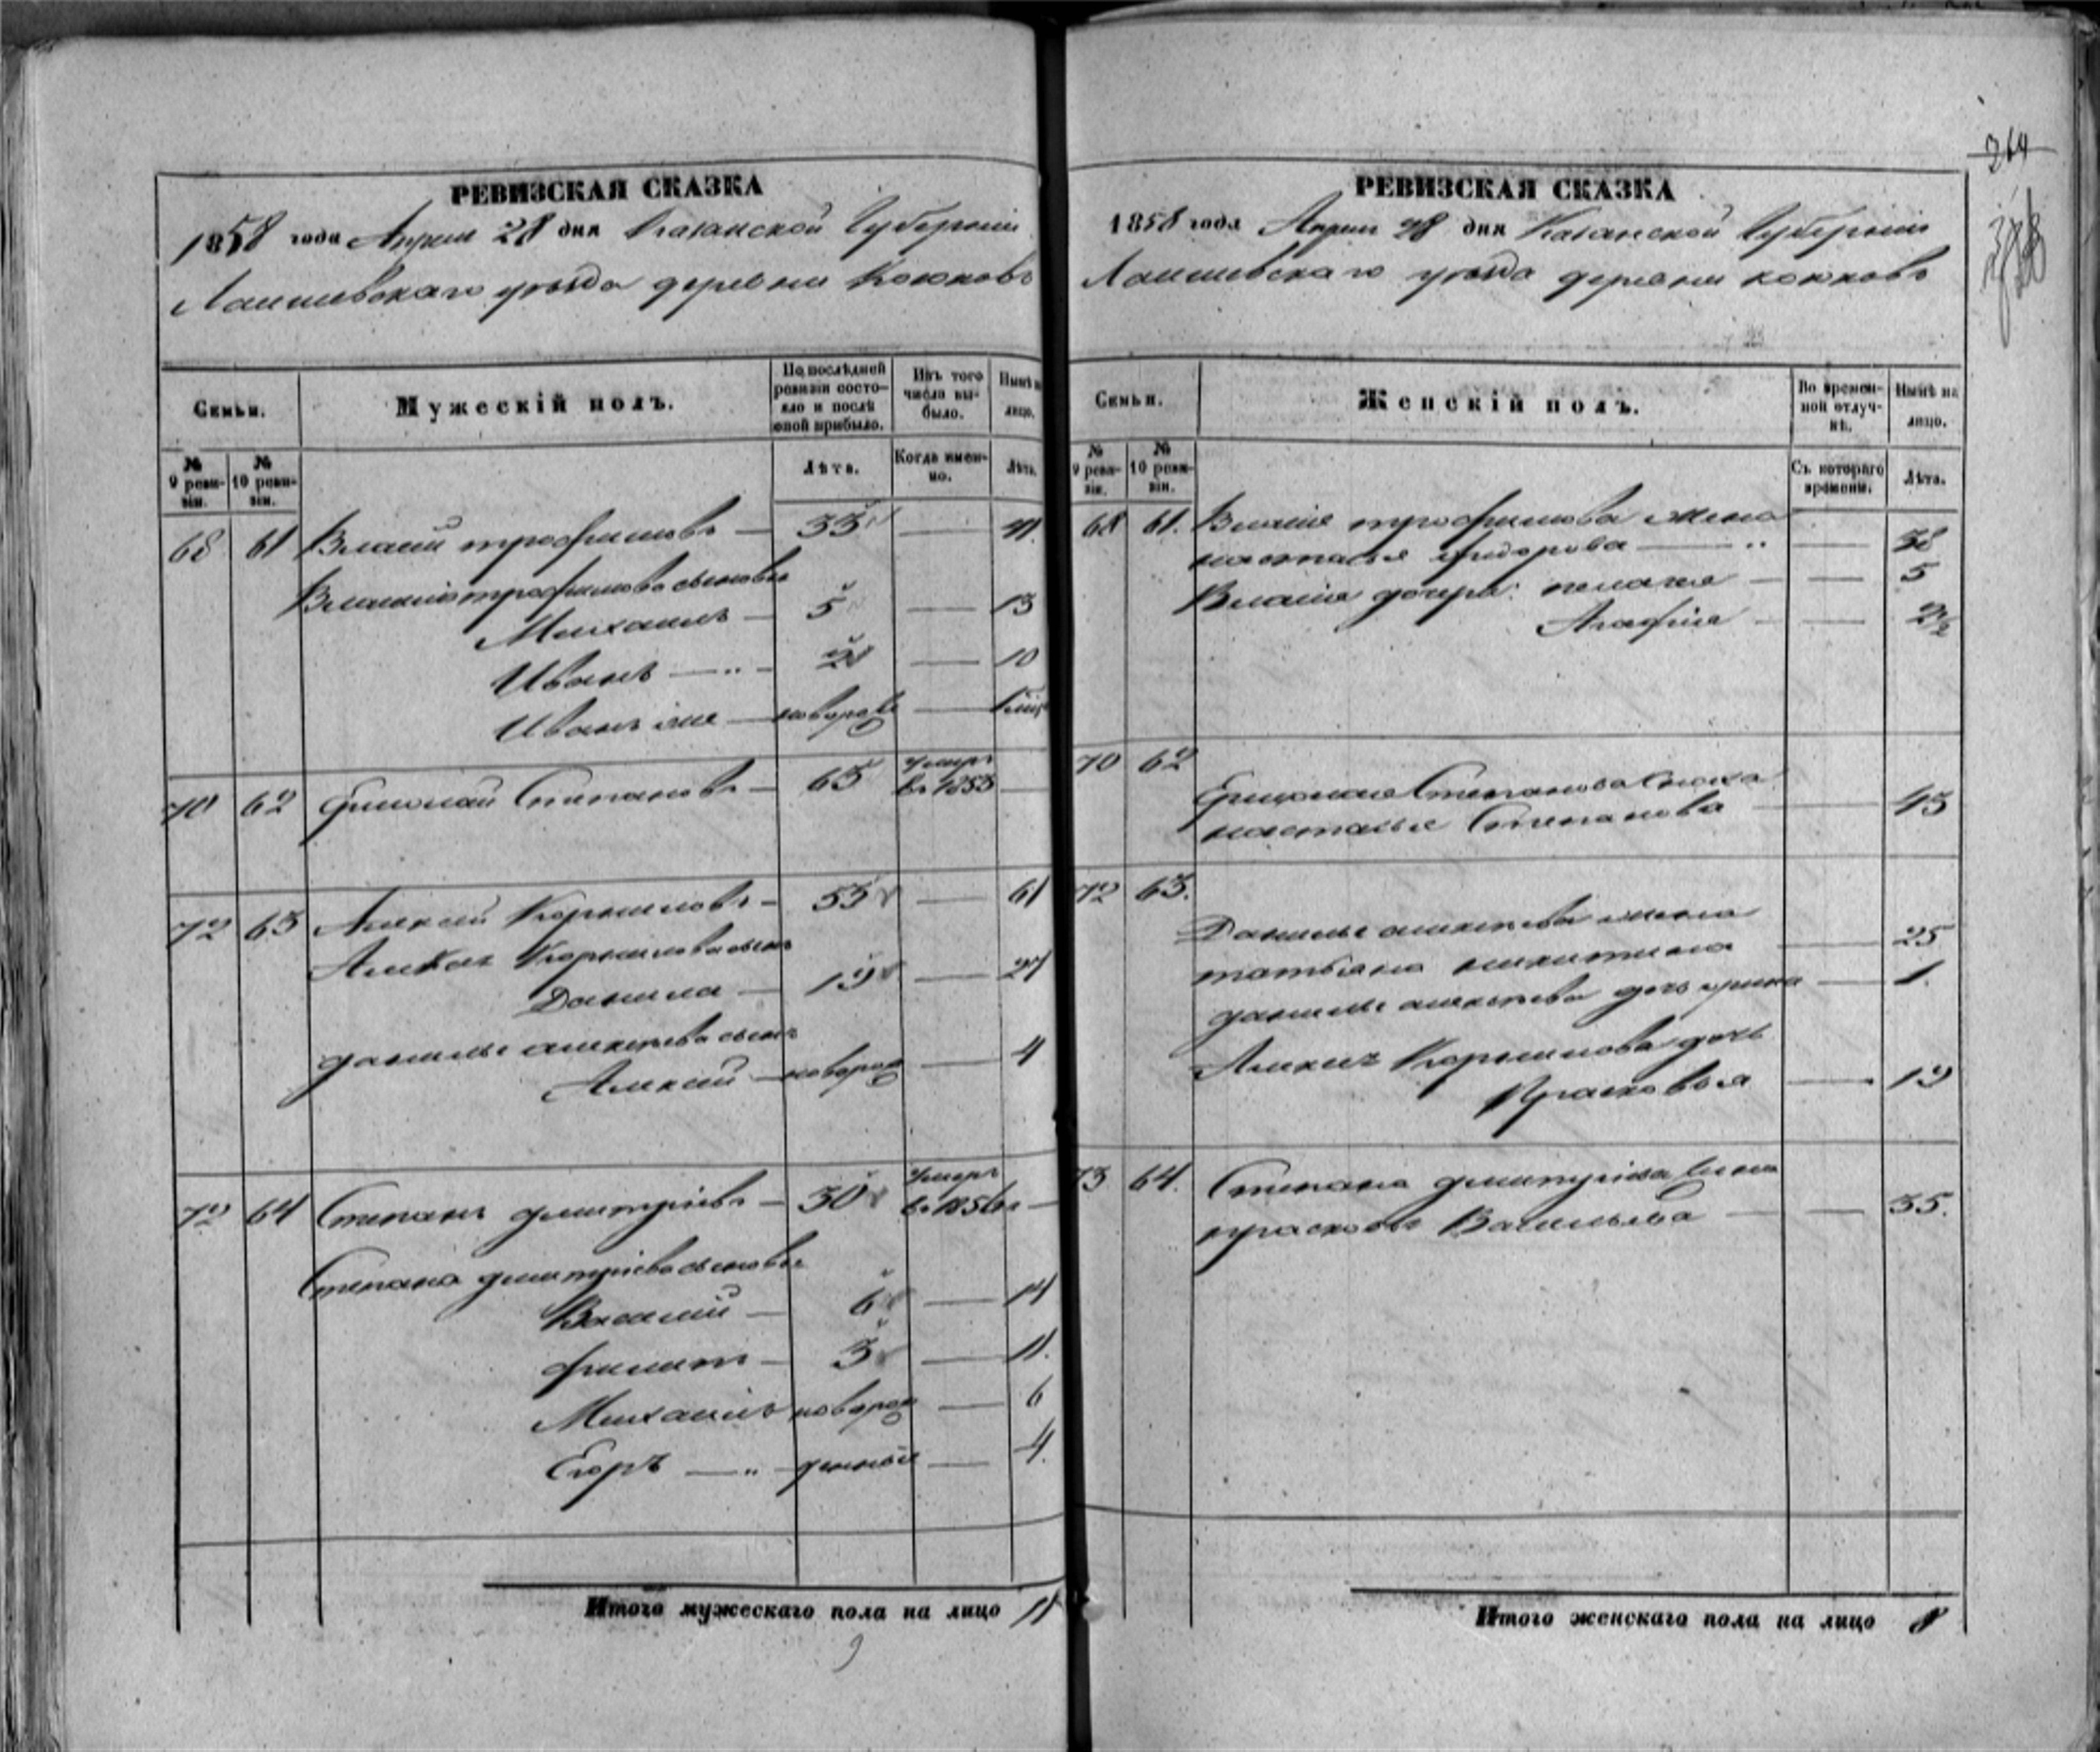 РЕВИЗСКАЯ СКАЗКА
1858 года Апреля 28 дня Казанской Губернiи
Лаишевскаго уезда деревни Коюковъ
Семьи.
Мужескiй полъ.
По послѣдней ревизiи состояло и послѣ оной прибыло.
Изъ того числа выбыло.
Нынѣ на лицо.
№ 9 ревизiи.
№ 10 ревизiи.
Лѣта.
Когда именно.
Лѣта.
68 61 Власий трофимовъ — 33 — 41.
трофимова сыновья
Михаилъ — 5 — 13
Иванъ — 2 — 10
Иванъ же — новорож —
70 62 Степановъ — 65 умеръ въ 1853 —
72 63 Алексей Корниловъ — 53 — 61
Корнилова сынъ
Данила — 19 — 27
данилы алексеева сынъ
Алексей — новорож — 4
72 64 Степанъ дмитрiевъ — 30 умеръ въ 1856 г —
Степана дмитрiева сыновья
Василий — 6 — 14
филипъ — 3 — 11.
Михаилъ новорож — 6
Егоръ — " — денные — 4.
Итого мужескаго пола на лицо 11
РЕВИЗСКАЯ СКАЗКА
1858 года Апреля 28 дня Казанской Губернiи
Лаишевскаго уезда деревни коюковъ
Семьи.
Женскiй полъ.
Во временной отлучкѣ.
Нынѣ на лицо.
№ 9 ревизiи.
№ 10 ревизiи.
Съ котораго времени.
Лѣта.
68 61. Власия трофимова жена
настасья — " — 38
Власия дочери: пелагея — — 5
Агафия — — 2 1/2
70 62
Степанова сноха
настасья Степанова — 45
72 63.
Данилы алексеева жена
татьяна никитина — 25
данилы алексеева дочь ирина — 1.
Корнилова дочь
Прасковья — 19
73 64. Степана дмитрiева жена
прасковья Васильева — — 35.
Итого женскаго пола на лицо 8
264